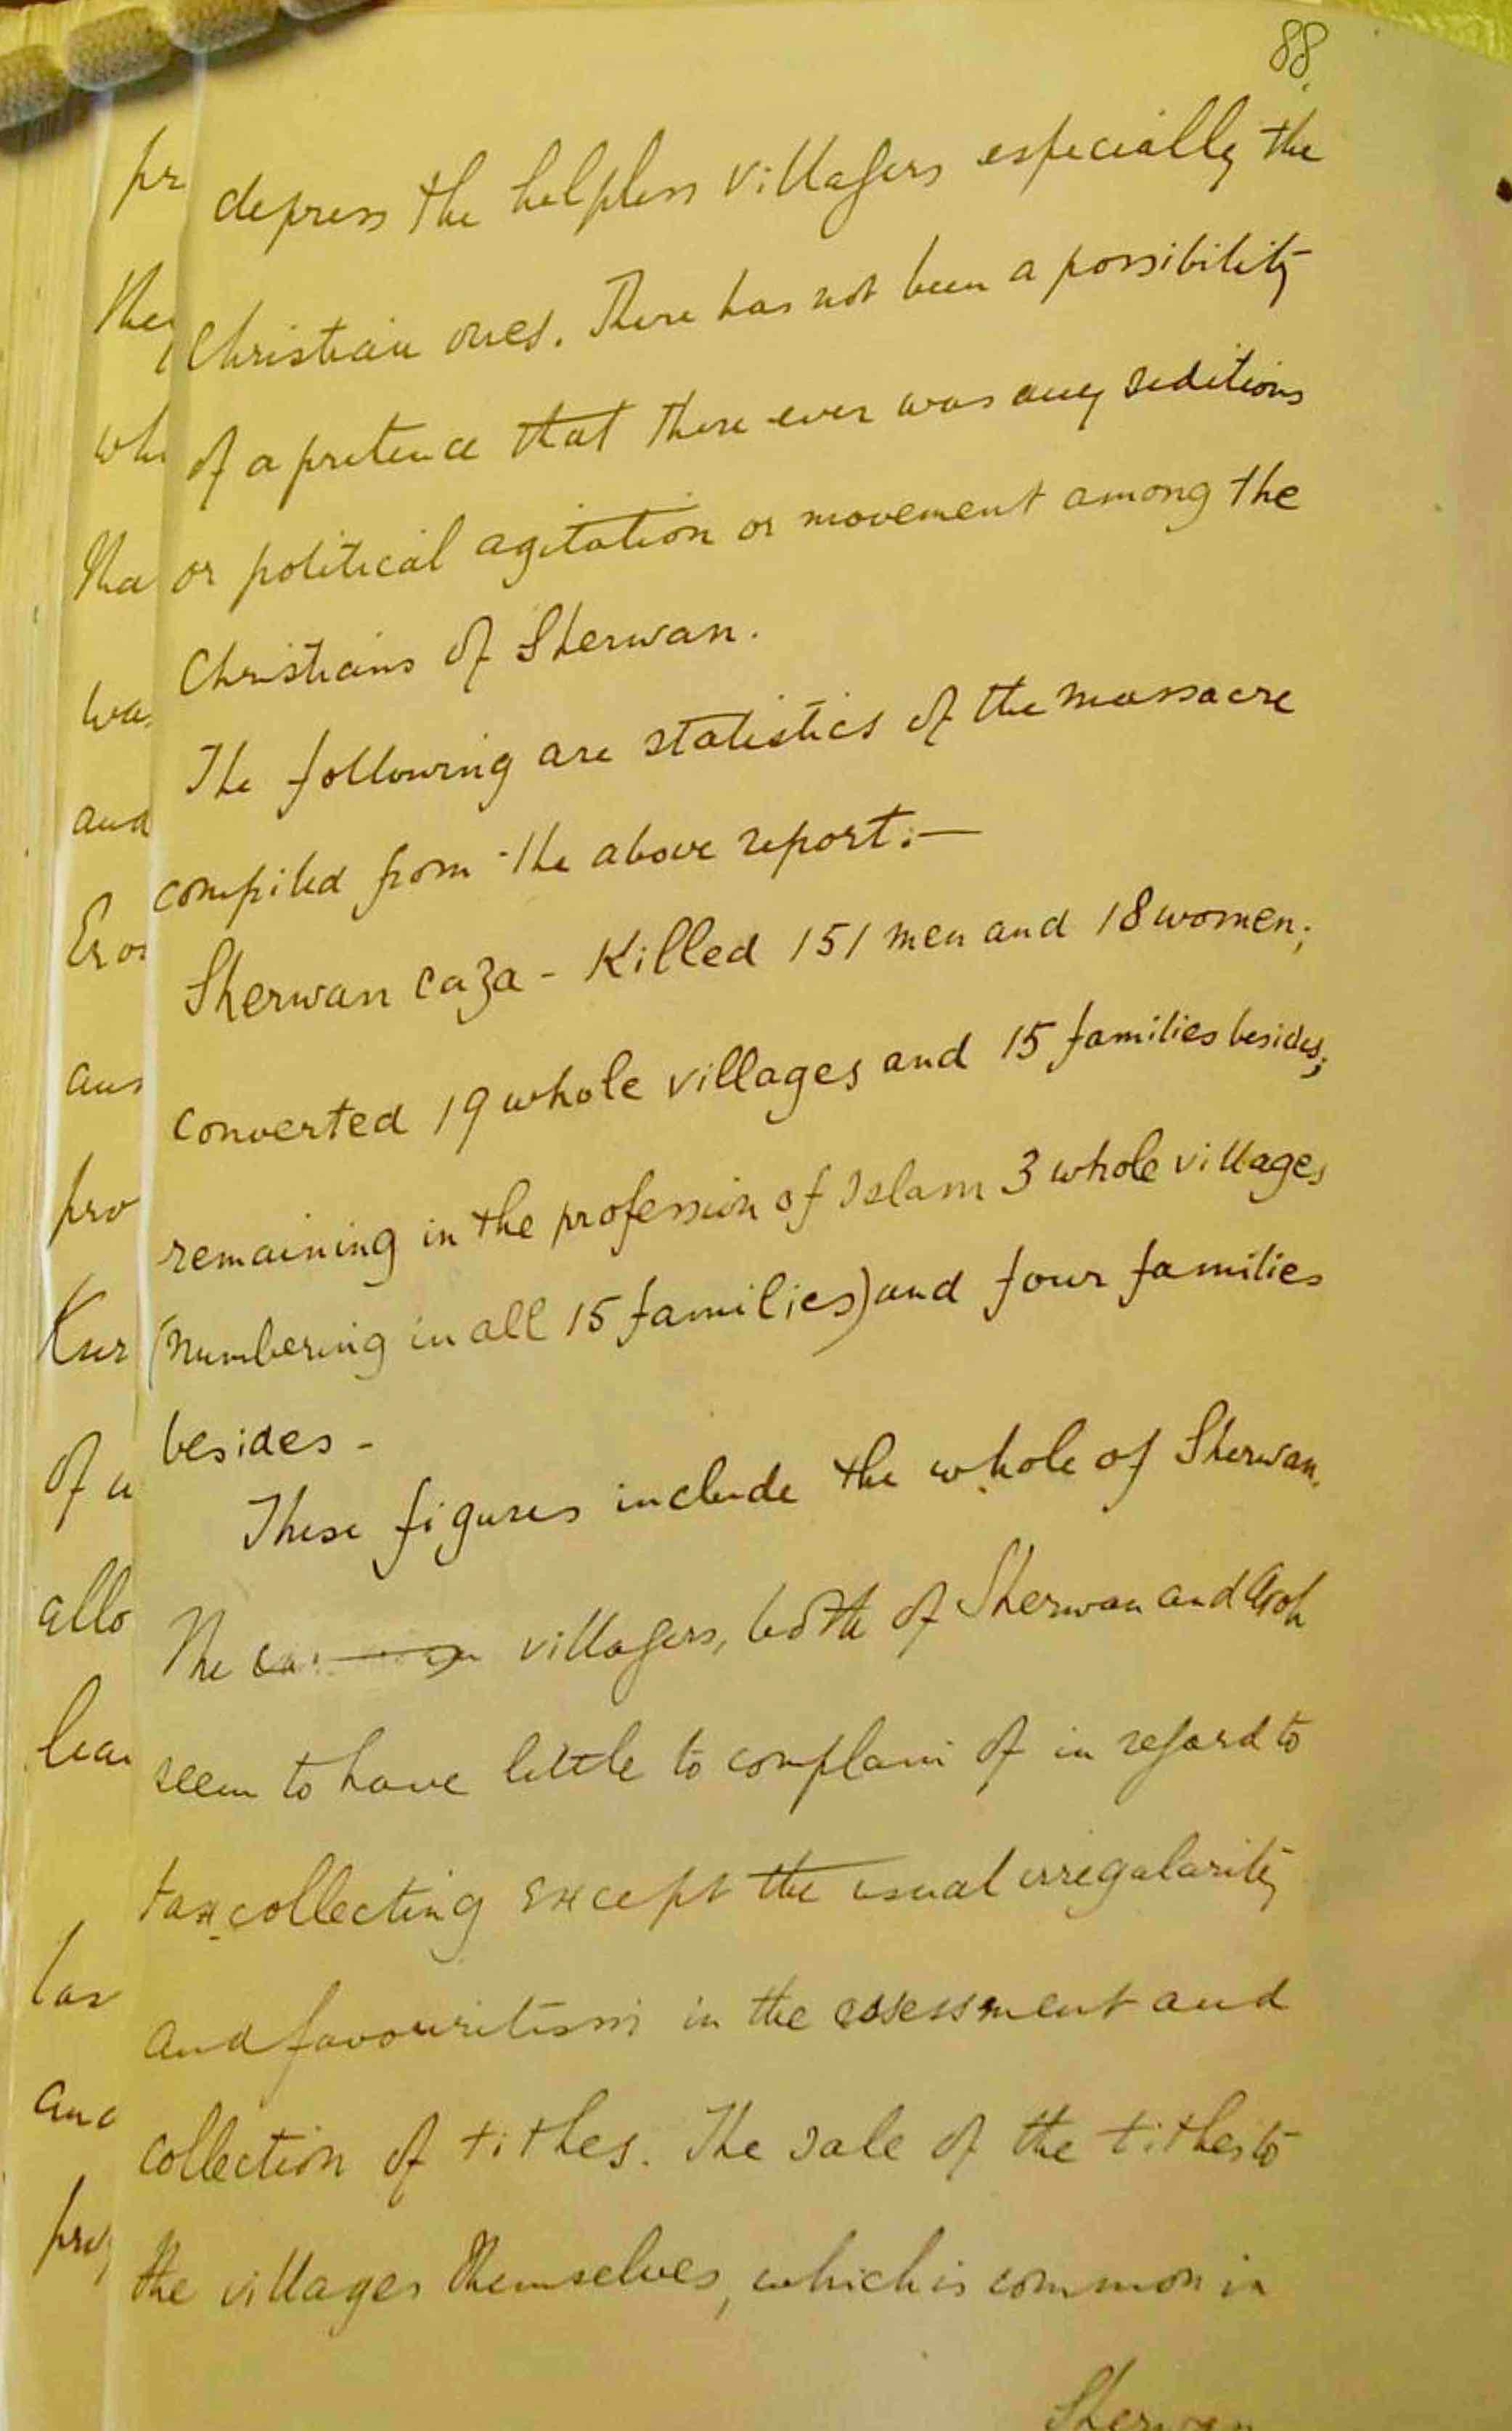 88.
depress the helpless villagers especially the
Christian ones. There has not been a possibility
of a pretence that there ever was any seditious
or political agitation or movement among the
Christians of Sherwan.
The following are statistics of the massacre
compiled from the above report:—
Sherwan caza - Killed 151 men and 18 women;
converted 19 whole villages and 15 families besides;
remaining in the profession of Islam 3 whole villages
(numbering in all 15 families) and four families
besides -
These figures include the whole of Sherwan.
The villagers, both of Sherwan and
seem to have little to complain of in regard to
tax collecting except the usual irregularity
and favouritism in the assessment and
collection of tithes. The sale of the tithes to
the villages themselves, which is common in
Sherwan
pr
wh
and
pro
Kur
of
allo